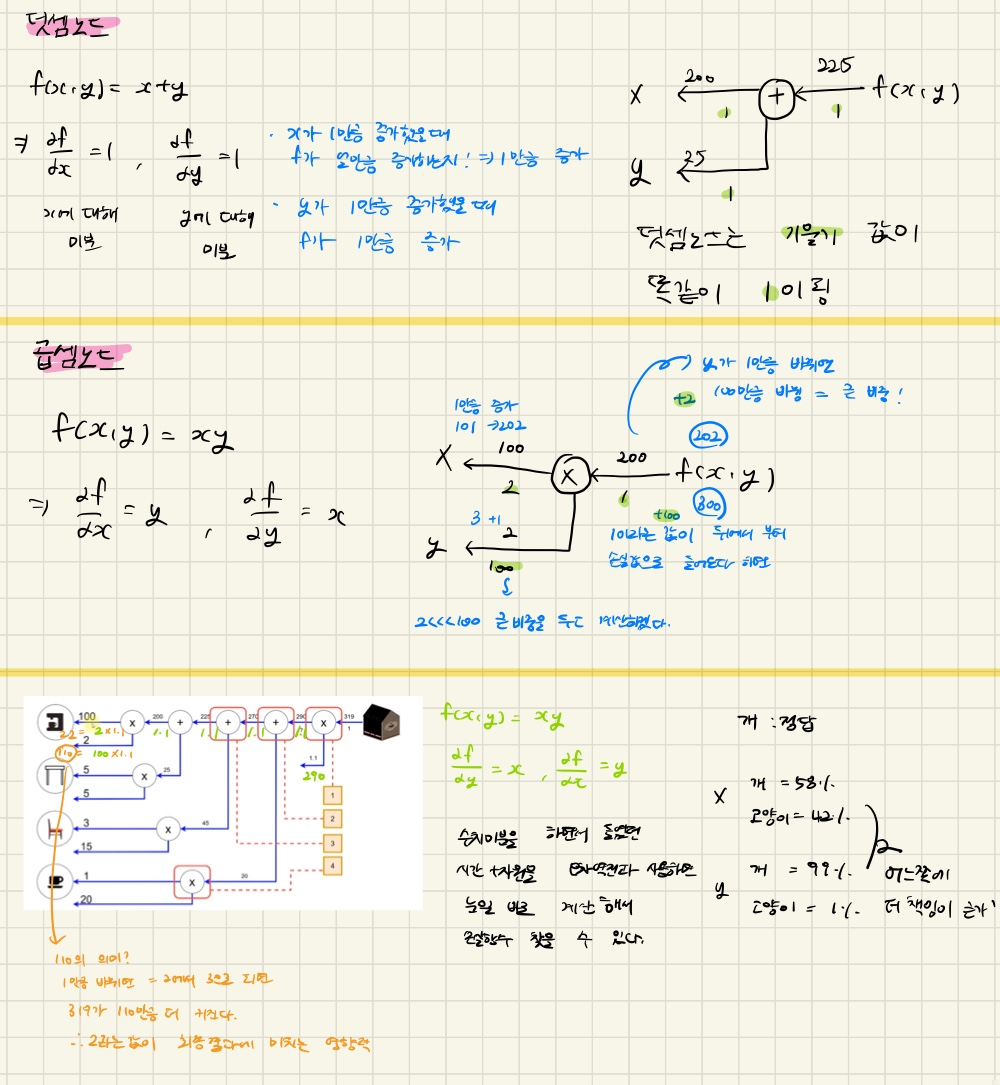 덧셈노드
f(x,y) = x+y
⇒ ∂f/∂x = 1 , ∂f/∂y = 1
x에 대해 미분
y에 대해 미분
· x가 1만큼 증가했을 때
f가 얼만큼 증가하는지! ⇒ 1만큼 증가
· y가 1만큼 증가했을 때
f가 1만큼 증가
x 200 + 225 f(x,y)
1 1
y 25
1
덧셈노드는 기울기 값이
똑같이 1이됨
곱셈노드
f(x,y) = xy
⇒ ∂f/∂x = y , ∂f/∂y = x
y가 1만큼 바뀌면
+2 100만큼 바뀜 = 큰 비중!
1만큼 증가
101 → 202
202
x 100 x 200 f(x,y)
2 1
+100 300
3 +1
y 2
100
1이라는 값이 뒤에서 부터
손실값으로 들어온다 하면
2<<<100 큰 비중을 두고 계산하겠다.
100 x 200 + 225 + 270 + 290 x 319
22 = 2×1.1 1.1 1.1 1.1 1.1 1
2
110 = 100×1.1
1.1
290
5 x 25
5
3 x 45
15
1 x 20
20
1
2
3
4
110의 의미?
1만큼 바뀌면 = 2에서 3으로 되면
319가 110만큼 더 커진다.
∴ 2라는 값이 최종결과에 미치는 영향력
f(x,y) = xy
∂f/∂y = x , ∂f/∂x = y
수치미분을 하면서 들었던
시간 + 자원을 역전파 사용하면
계산해서
찾을 수 있다.
개 : 정답
x 개 = 58%
고양이 = 42%
y 개 = 99%
고양이 = 1%
어느쪽이
더 책임이 큰가!